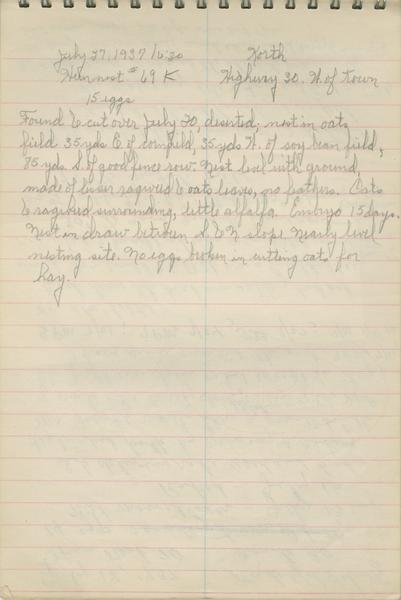 July 27, 1937 16:20 North
Hun nest # 69 K Highway 30. W. of Town
15 eggs
Found & cut over July 20, deserted; nest in oats
field 35 yds. E. of cornfield, 35 yds. W. of soy bean field,
75 yds. S. of good fence row. Nest level with ground,
made of lesser ragweed & oats leaves, no feathers. Oats
& ragweed surrounding, little alfalfa. Embryo 15 days.
Nest in draw between S & N slope. Nearly level
nesting site. No eggs broken in cutting oats for
hay.